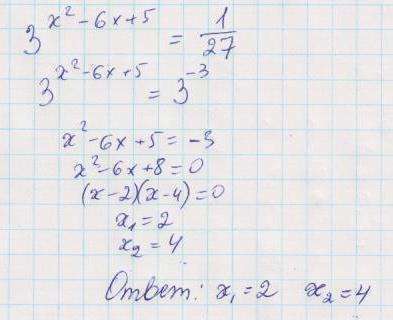 3^{x^2-6x+5} = \frac{1}{27}
3^{x^2-6x+5} = 3^{-3}
x^2-6x+5=-3
x^2-6x+8=0
(x-2)(x-4)=0
x_1=2
x_2=4
Ответ: x_1=2 x_2=4